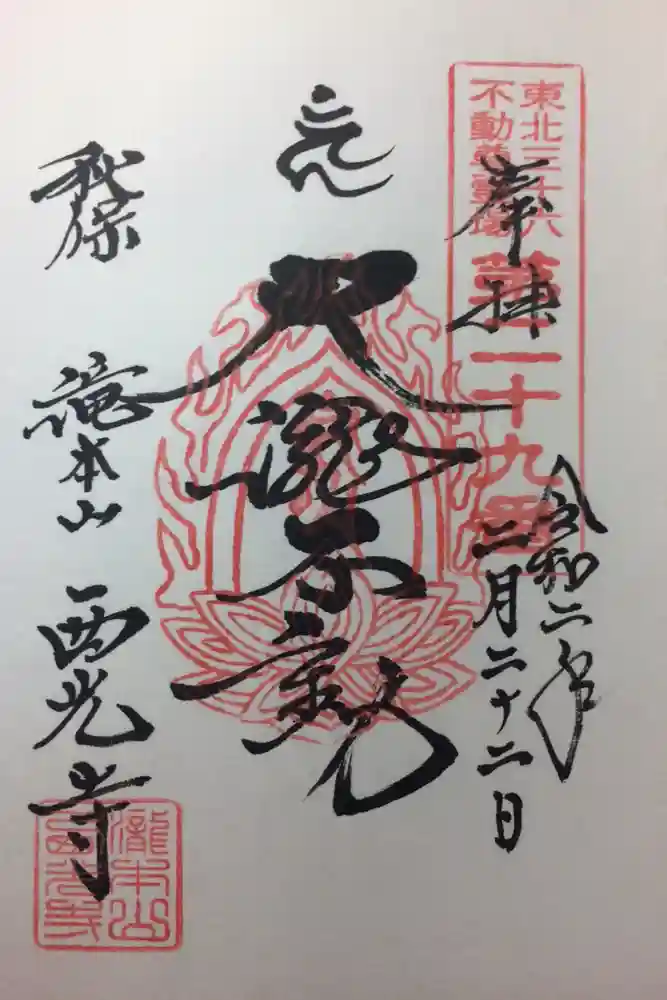 東北三十六
不動尊霊場
第二十九番
奉拝
令和二年
二月二十二日
大瀧不動
秋保
滝本山
西光寺
瀧本山
西光寺